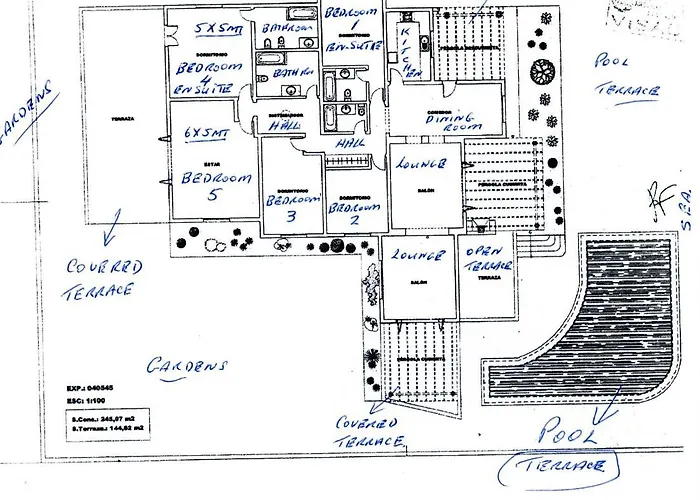 5X5MT
DORMITORIO
BEDROOM
4
EN SUITE
BATHROOM
BATH RM
BEDROOM
1
DORMITORIO
EN-SUITE
KITCH
EN
PERGOLA DESCUBIERTA
POOL
TERRACE
GARDENS
TERRAZA
DISTRIBUIDOR
HALL
HALL
COMEDOR
DINING
ROOM
6X5MT
ESTAR
BEDROOM
5
DORMITORIO
BEDROOM
3
DORMITORIO
BEDROOM
2
LOUNGE
SALÓN
PERGOLA CUBIERTA
SEA
COVERED
TERRACE
LOUNGE
SALÓN
OPEN
TERRACE
TERRAZA
PERGOLA CUBIERTA
GARDENS
EXP.: 040545
ESC: 1:100
S.Cons.: 245,97 m2
S.Terraza.: 144,62 m2
COVERED
TERRACE
POOL
TERRACE